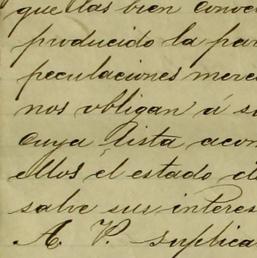 que las bien conoc
producido la par
peculaciones merc
nos obligan á s
cuya lista acom
ellos el estado d
salve sus interes
A. V. suplica